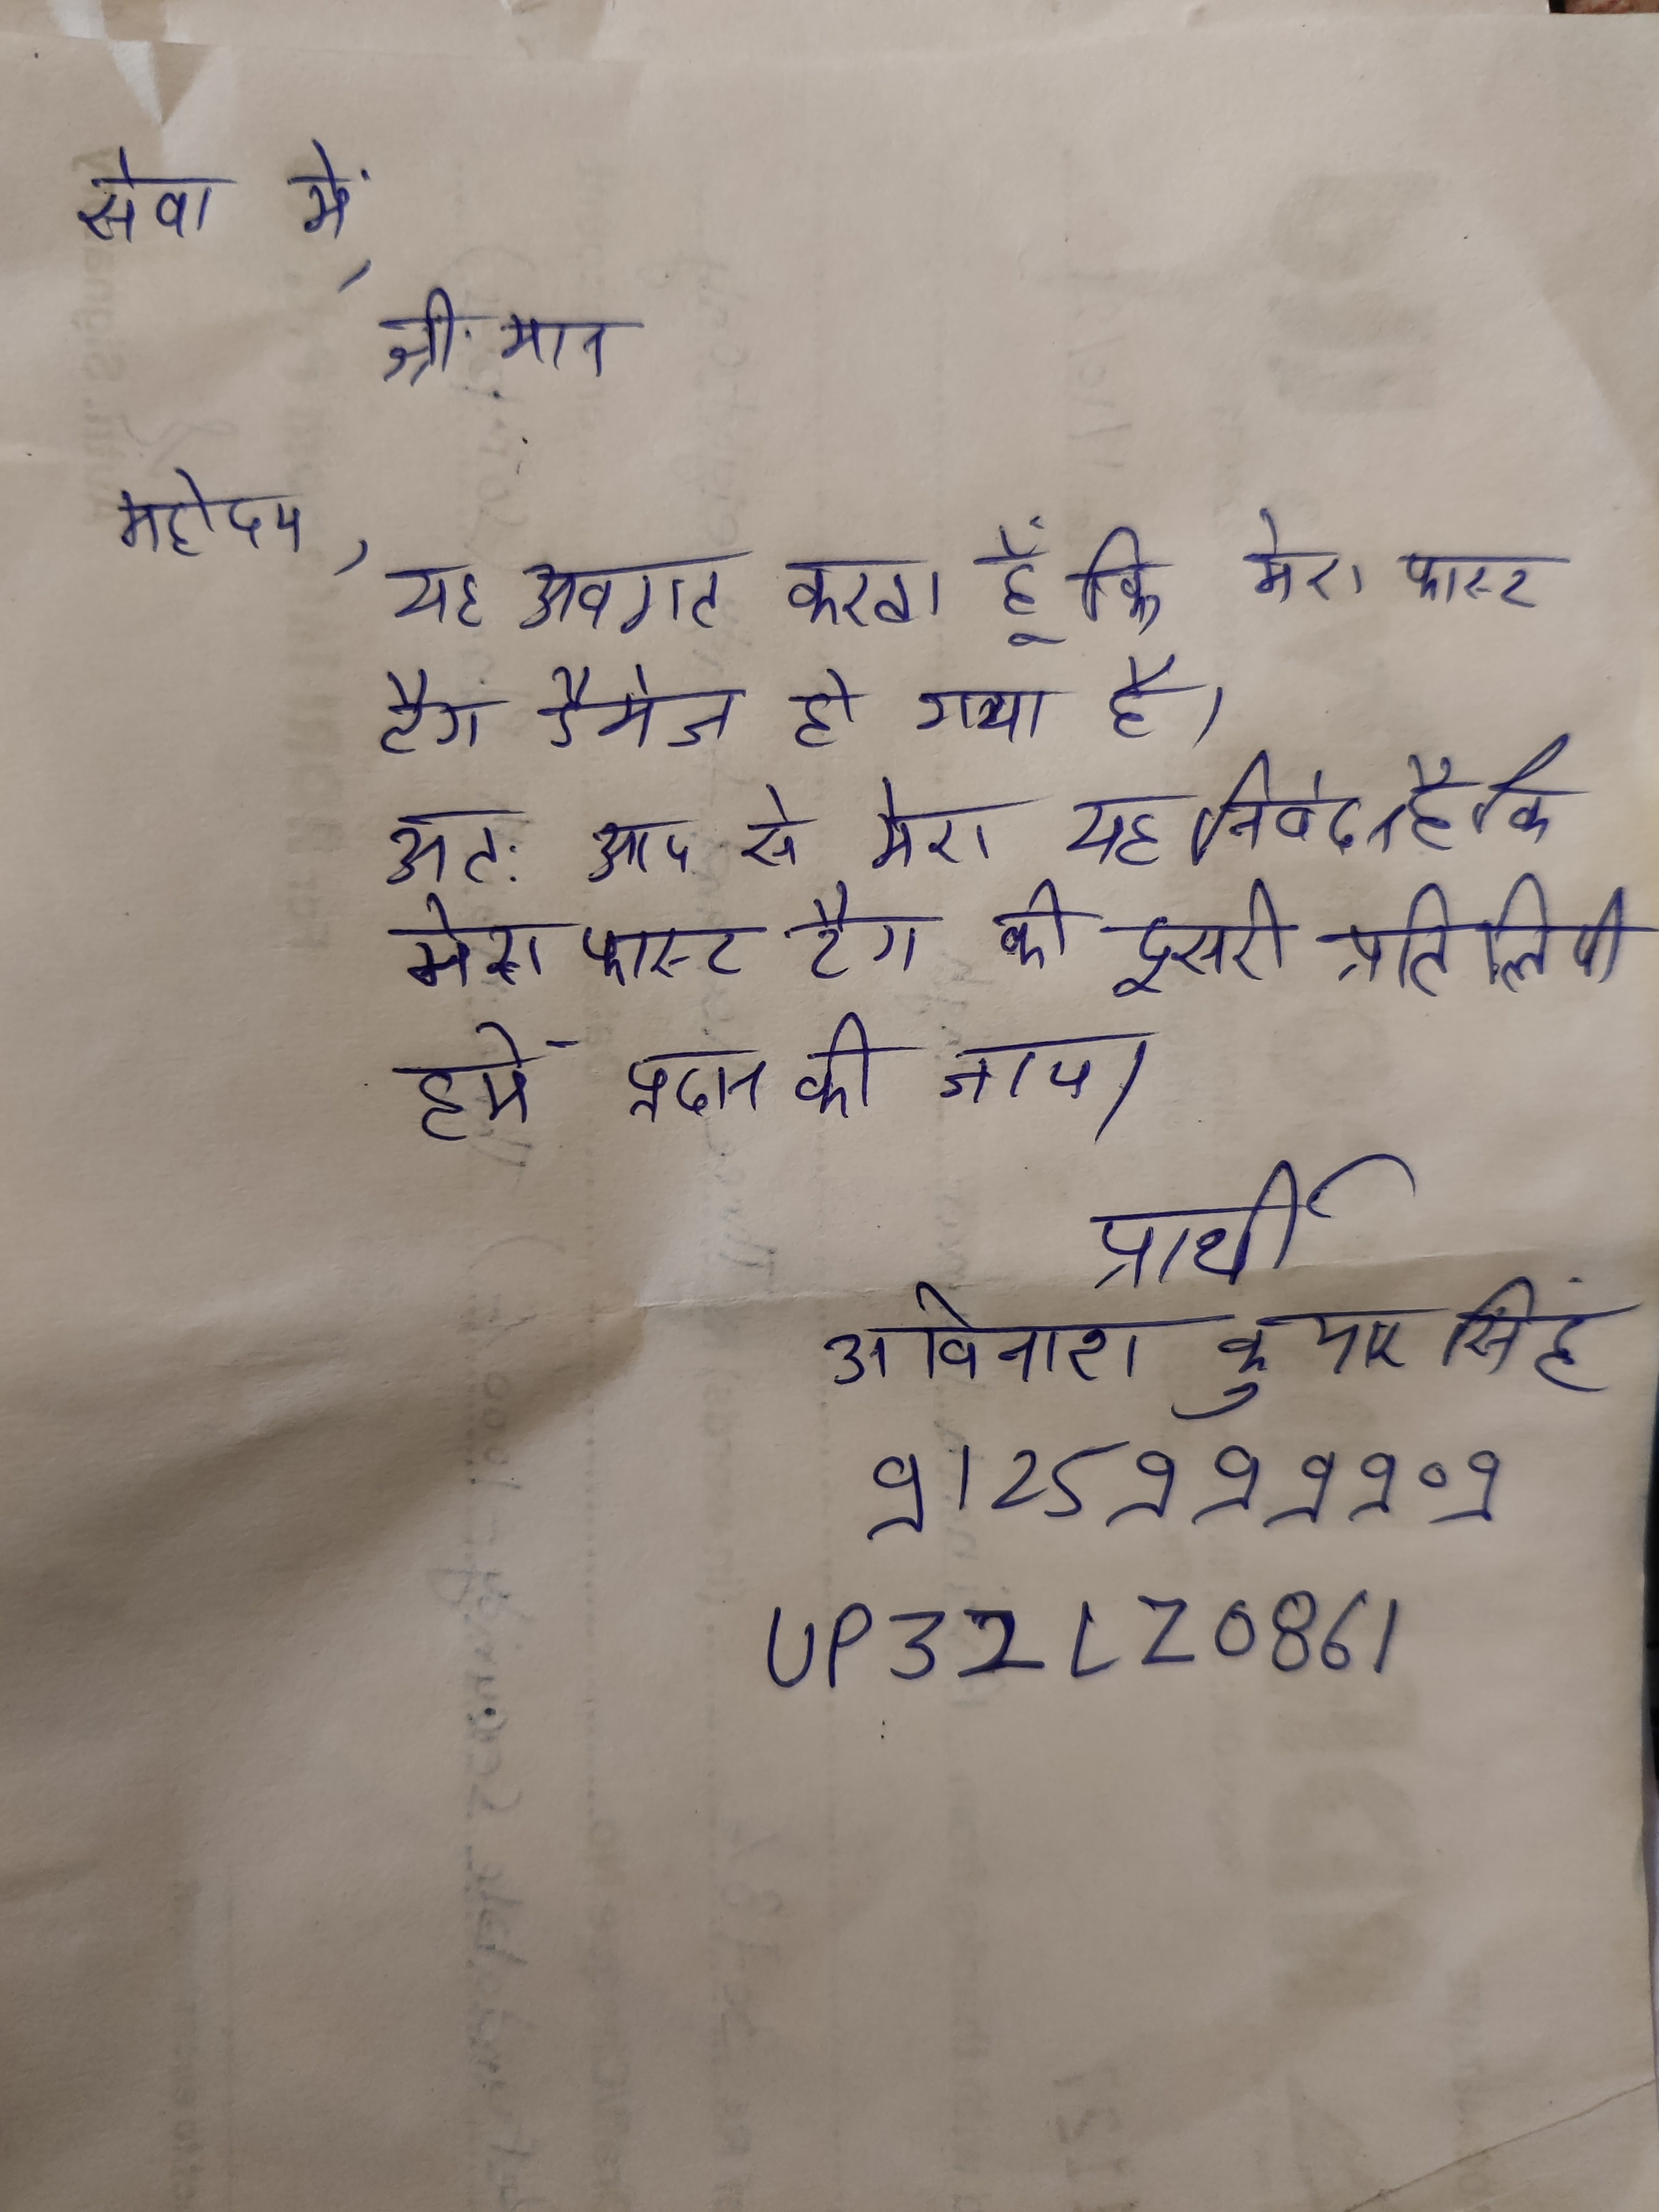 सेवा में,
श्री मान
महोदय,
यह अवगत करता हूँ कि मेरा फास्ट
टैग डैमेज हो गया है।
अतः आप से मेरा यह निवेदन है कि
मेरा फास्ट टैग की दूसरी प्रतिलिपी
हमें प्रदान की जाय।
प्रार्थी
अविनाश कुमार सिंह
9125999909
UP32LZ0861